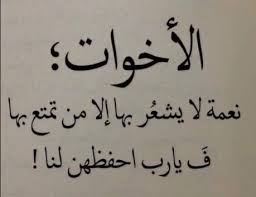 الأخوات؛
نعمة لا يشعُر بها إلا من تمتع بها
فَ يارب احفظهن لنا !